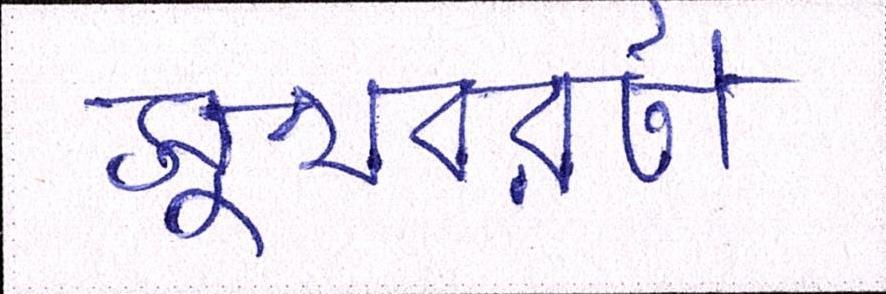 সুখবরটা